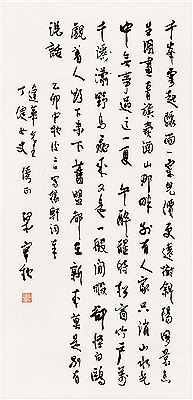 千峯雲起驟雨一霎兒價更遠樹斜陽風景怎
生圖畫青旗賣酒山那畔別有人家只消山水光
中無事過這一夏 午醉醒時松窗竹戶萬
千瀟灑野鳥飛來又是一般閒暇却怪白鷗
覷着人欲下未下舊盟都在新來莫是別有
說話
乙卯中秋後二日寫稼軒詞奉
逢華先生
丁健女史 儷正
梁實秋